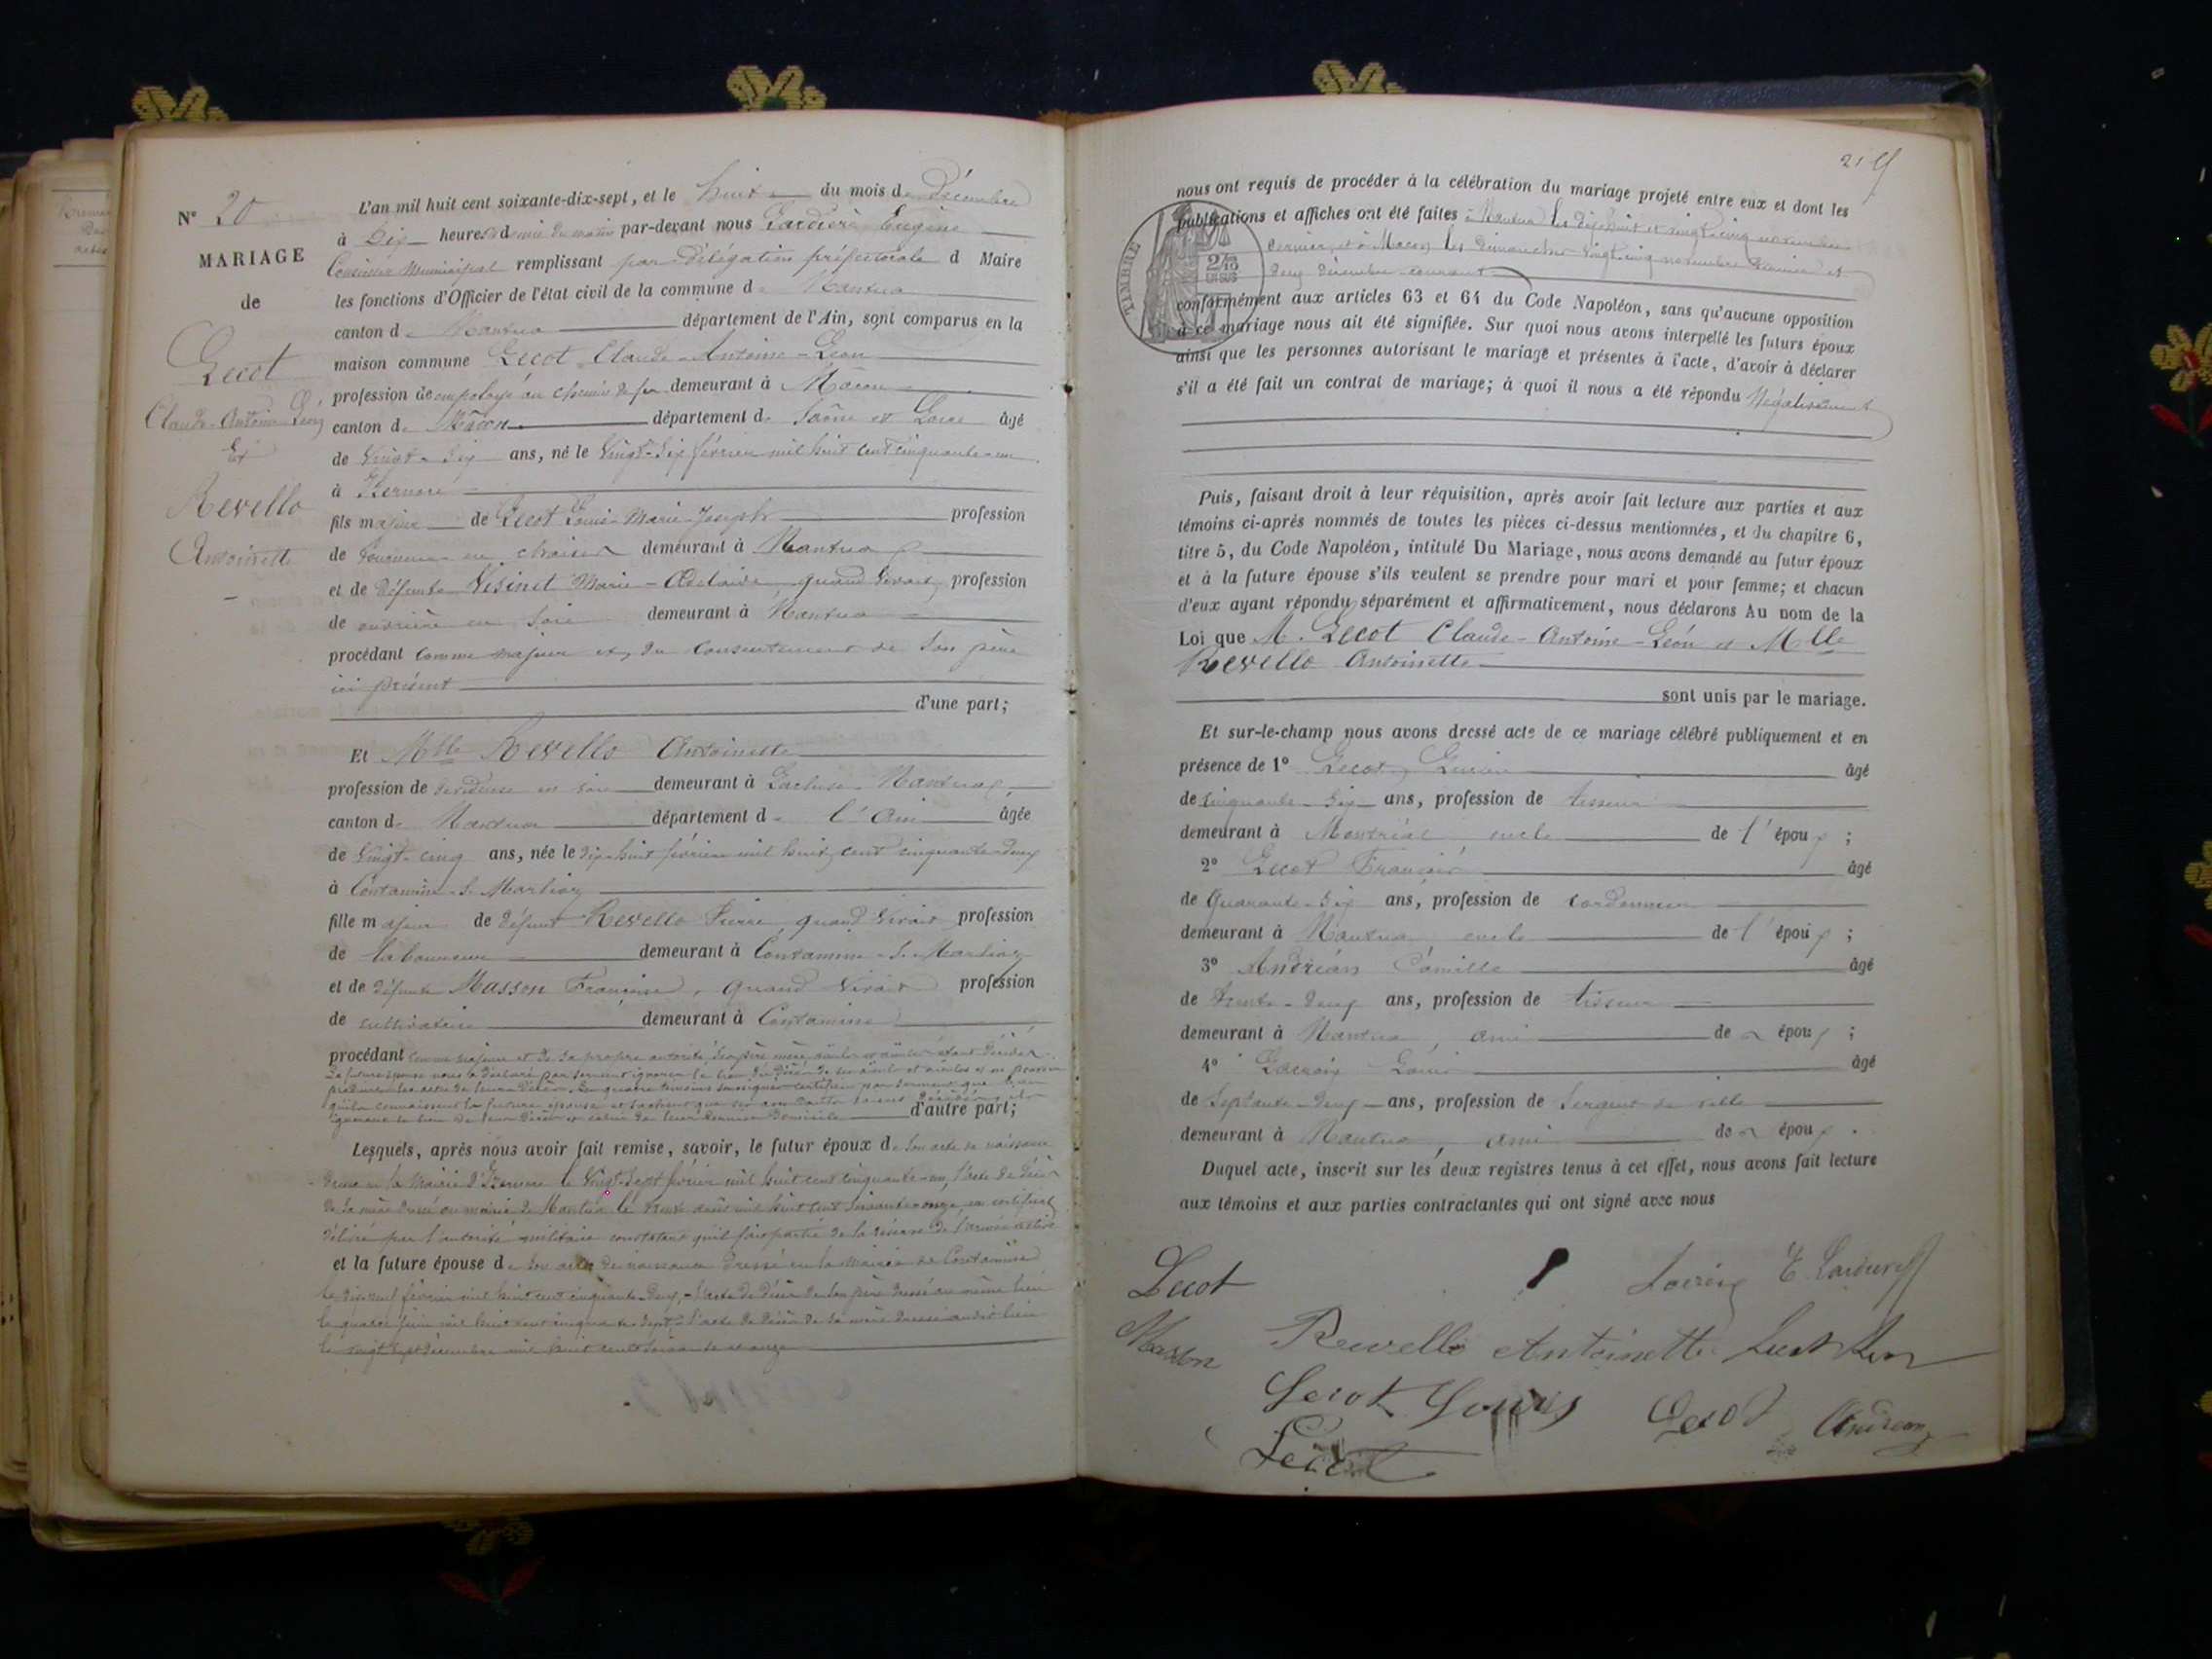 N° 20
MARIAGE
de
Lecot
Claude-Antoine-Léon
Et
Revello
Antoinette
L'an mil huit cent soixante-dix-sept, et le huit du mois de Décembre
à Dix heures et demie du matin par-devant nous Eugène
Conseiller Municipal remplissant par délégation préfectorale d Maire
les fonctions d'Officier de l'état civil de la commune de Nantua
canton de Nantua département de l'Ain, sont comparus en la
maison commune Lecot Claude-Antoine-Léon
profession de employé au chemin de fer demeurant à Mâcon
canton de Mâcon département de Saône et Loire âgé
de Vingt-Six ans, né le Vingt-Six février mil huit cent cinquante-un
à Izernore
fils majeur de Lecot Louis-Marie-Joseph profession
de tourneur en chaises demeurant à Nantua
et de défunte Visinet Marie-Adelaïde quand vivait, profession
de ouvrière en soie demeurant à Nantua
procédant comme majeur et, du consentement de son père
ici présent
d'une part;
Et Mlle Revello Antoinette
profession de dévideuse en soie demeurant à Lacluse-Nantua
canton de Nantua département de l'Ain âgée
de Vingt-cinq ans, née le dix-huit février mil huit cent cinquante-deux
à Contamine-S.-Marlioz
fille majeure de défunt Revello Pierre, quand vivait profession
de laboureur demeurant à Contamine-S.-Marlioz
et de défunte Masson Françoise, quand vivait profession
de cultivatrice demeurant à Contamine
procédant comme majeure et de sa propre autorité ses père mère, aïeuls et aïeules étant décédés
La future épouse nous a déclaré par serment ignorer le lieu du décès de ses aïeuls et aïeules et ne pouvoir
produire les actes de leur décès. Les quatre témoins soussignés certifient par serment que bien
qu'ils connaissent la future épouse et sachent que ses sont décédés, ils
ignorent le lieu de leur décès et celui de leur dernier domicile d'autre part;
Lesquels, après nous avoir fait remise, savoir, le futur époux de son acte de naissance
dressé en la Mairie d'Izernore le Vingt-Sept février mil huit cent cinquante-un, l'acte de décès
de sa mère dressé en mairie de Nantua le trente août mil huit cent soixante-onze un certificat
délivré par l'autorité militaire constatant qu'il fait partie de la réserve de l'armée active
et la future épouse de son acte de naissance dressé en la Mairie de Contamine
le dix-neuf février mil huit cent cinquante-deux, l'acte de décès de son père dressé au même lieu
le quatre juin mil huit cent cinquante-sept, l'acte de décès de sa mère dressé audit lieu
le vingt-sept décembre mil huit cent soixante et onze
219
nous ont requis de procéder à la célébration du mariage projeté entre eux et dont les
publications et affiches ont été faites à Nantua les dix-huit et vingt-cinq novembre
dernier, et à Macon les dimanches vingt-cinq novembre dernier et
deux décembre courant
TIMBRE
2/10
EN SUS
conformément aux articles 63 et 64 du Code Napoléon, sans qu'aucune opposition
à ce mariage nous ait été signifiée. Sur quoi nous avons interpellé les futurs époux
ainsi que les personnes autorisant le mariage et présentes à l'acte, d'avoir à déclarer
s'il a été fait un contrat de mariage; à quoi il nous a été répondu Négativement
Puis, faisant droit à leur réquisition, après avoir fait lecture aux parties et aux
témoins ci-après nommés de toutes les pièces ci-dessus mentionnées, et du chapitre 6,
titre 5, du Code Napoléon, intitulé Du Mariage, nous avons demandé au futur époux
et à la future épouse s'ils veulent se prendre pour mari et pour femme; et chacun
d'eux ayant répondu séparément et affirmativement, nous déclarons Au nom de la
Loi que M. Lecot Claude-Antoine-Léon et Mlle
Revello Antoinette
sont unis par le mariage.
Et sur-le-champ nous avons dressé acte de ce mariage célébré publiquement et en
présence de 1° Lecot âgé
de Cinquante-Six ans, profession de tisseur
demeurant à Montréal, oncle de l'époux ;
2° Lecot François âgé
de Quarante-Six ans, profession de cordonnier
demeurant à Nantua, oncle de l'époux ;
3° Andréan Camille âgé
de trente-deux ans, profession de tisseur
demeurant à Nantua, ami des époux ;
4° Lacroix Louis âgé
de Septante-deux ans, profession de Sergent de ville
demeurant à Nantua, ami des époux .
Duquel acte, inscrit sur les deux registres tenus à cet effet, nous avons fait lecture
aux témoins et aux parties contractantes qui ont signé avec nous
Lecot
Lacroix
Masson
Revello Antoinette Lecot Léon
Lecot Louis
Lecot
Andrean
Lecot